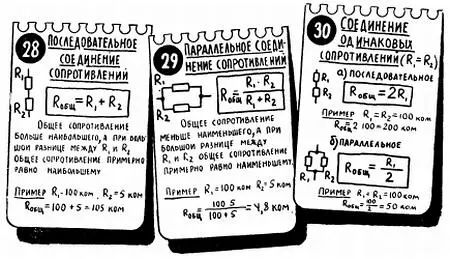 28 ПОСЛЕДОВАТЕЛЬНОЕ
СОЕДИНЕНИЕ
СОПРОТИВЛЕНИЙ
R₁
R₂
Rобщ = R₁ + R₂
ОБЩЕЕ СОПРОТИВЛЕНИЕ
БОЛЬШЕ НАИБОЛЬШЕГО, А ПРИ БОЛЬ
ШОЙ РАЗНИЦЕ МЕЖДУ R₁ И R₂
ОБЩЕЕ СОПРОТИВЛЕНИЕ ПРИМЕРНО
РАВНО НАИБОЛЬШЕМУ
ПРИМЕР R₁-100 КОМ, R₂=5 КОМ
Rобщ=100+5=105 КОМ
29 ПАРАЛЛЕЛЬНОЕ СОЕДИ-
НЕНИЕ СОПРОТИВЛЕНИЙ
R₁
R₂
Rобщ = R₁·R₂ / R₁+R₂
ОБЩЕЕ СОПРОТИВЛЕНИЕ
МЕНЬШЕ НАИМЕНЬШЕГО, А ПРИ
БОЛЬШОЙ РАЗНИЦЕ МЕЖДУ
R₁ И R₂ ОБЩЕЕ СОПРОТИВЛЕНИЕ
ПРИМЕРНО РАВНО НАИМЕНЬШЕМУ.
ПРИМЕР R₁=100 КОМ R₂=5 КОМ
Rобщ = 100·5 / 100+5 = 4,8 КОМ
30 СОЕДИНЕНИЕ
ОДИНАКОВЫХ
СОПРОТИВЛЕНИЙ (R₁=R₂)
а) ПОСЛЕДОВАТЕЛЬНОЕ
R₁
R₂
Rобщ = 2R₁
ПРИМЕР R₁=R₂=100 КОМ
Rобщ=2·100=200 КОМ
б) ПАРАЛЛЕЛЬНОЕ
R₁ R₂
Rобщ = R₁ / 2
ПРИМЕР R₁=R₂=100 КОМ
Rобщ = 100 / 2 = 50 КОМ